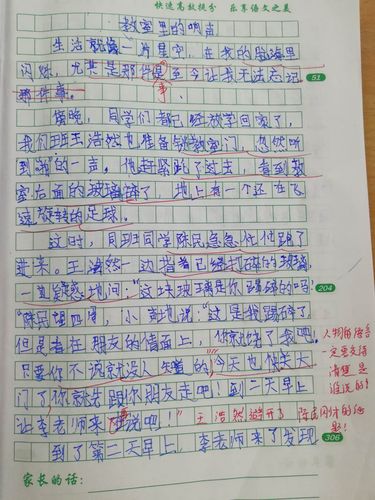 快速高效提分 乐享语文之美
教室里的响声
生活就像一片星空，在我的脑海里
闪烁，尤其是那件事至今让我无法忘记
那件事。
51
傍晚，同学们都已经放学回家了，
我们班王浩然也准备锁教室门，忽然听
到"啪"的一声。他赶紧跑了过去，看到教
室后面的玻璃碎了，地上有一个还在飞
速旋转的足球。
这时，同班同学陈民急急忙忙跑了
进来。王浩然一边指着已经打碎的玻璃，
一边疑惑地问："这块玻璃是你踢碎的吗
204
"陈民望四周，小声地说："这是我踢碎了，
但是看在朋友的情面上，你就饶了我吧！
只要你不说就没人知道的。今天也快关大
门了，你就先跟你朋友走吧！到二天早上
让李老师来说吧！"
王浩然避开了陈民同
题！
人物的语言
一定要交待
清楚是
谁说的！
到了第二天早上，李老师来了发现
306
家长的话：